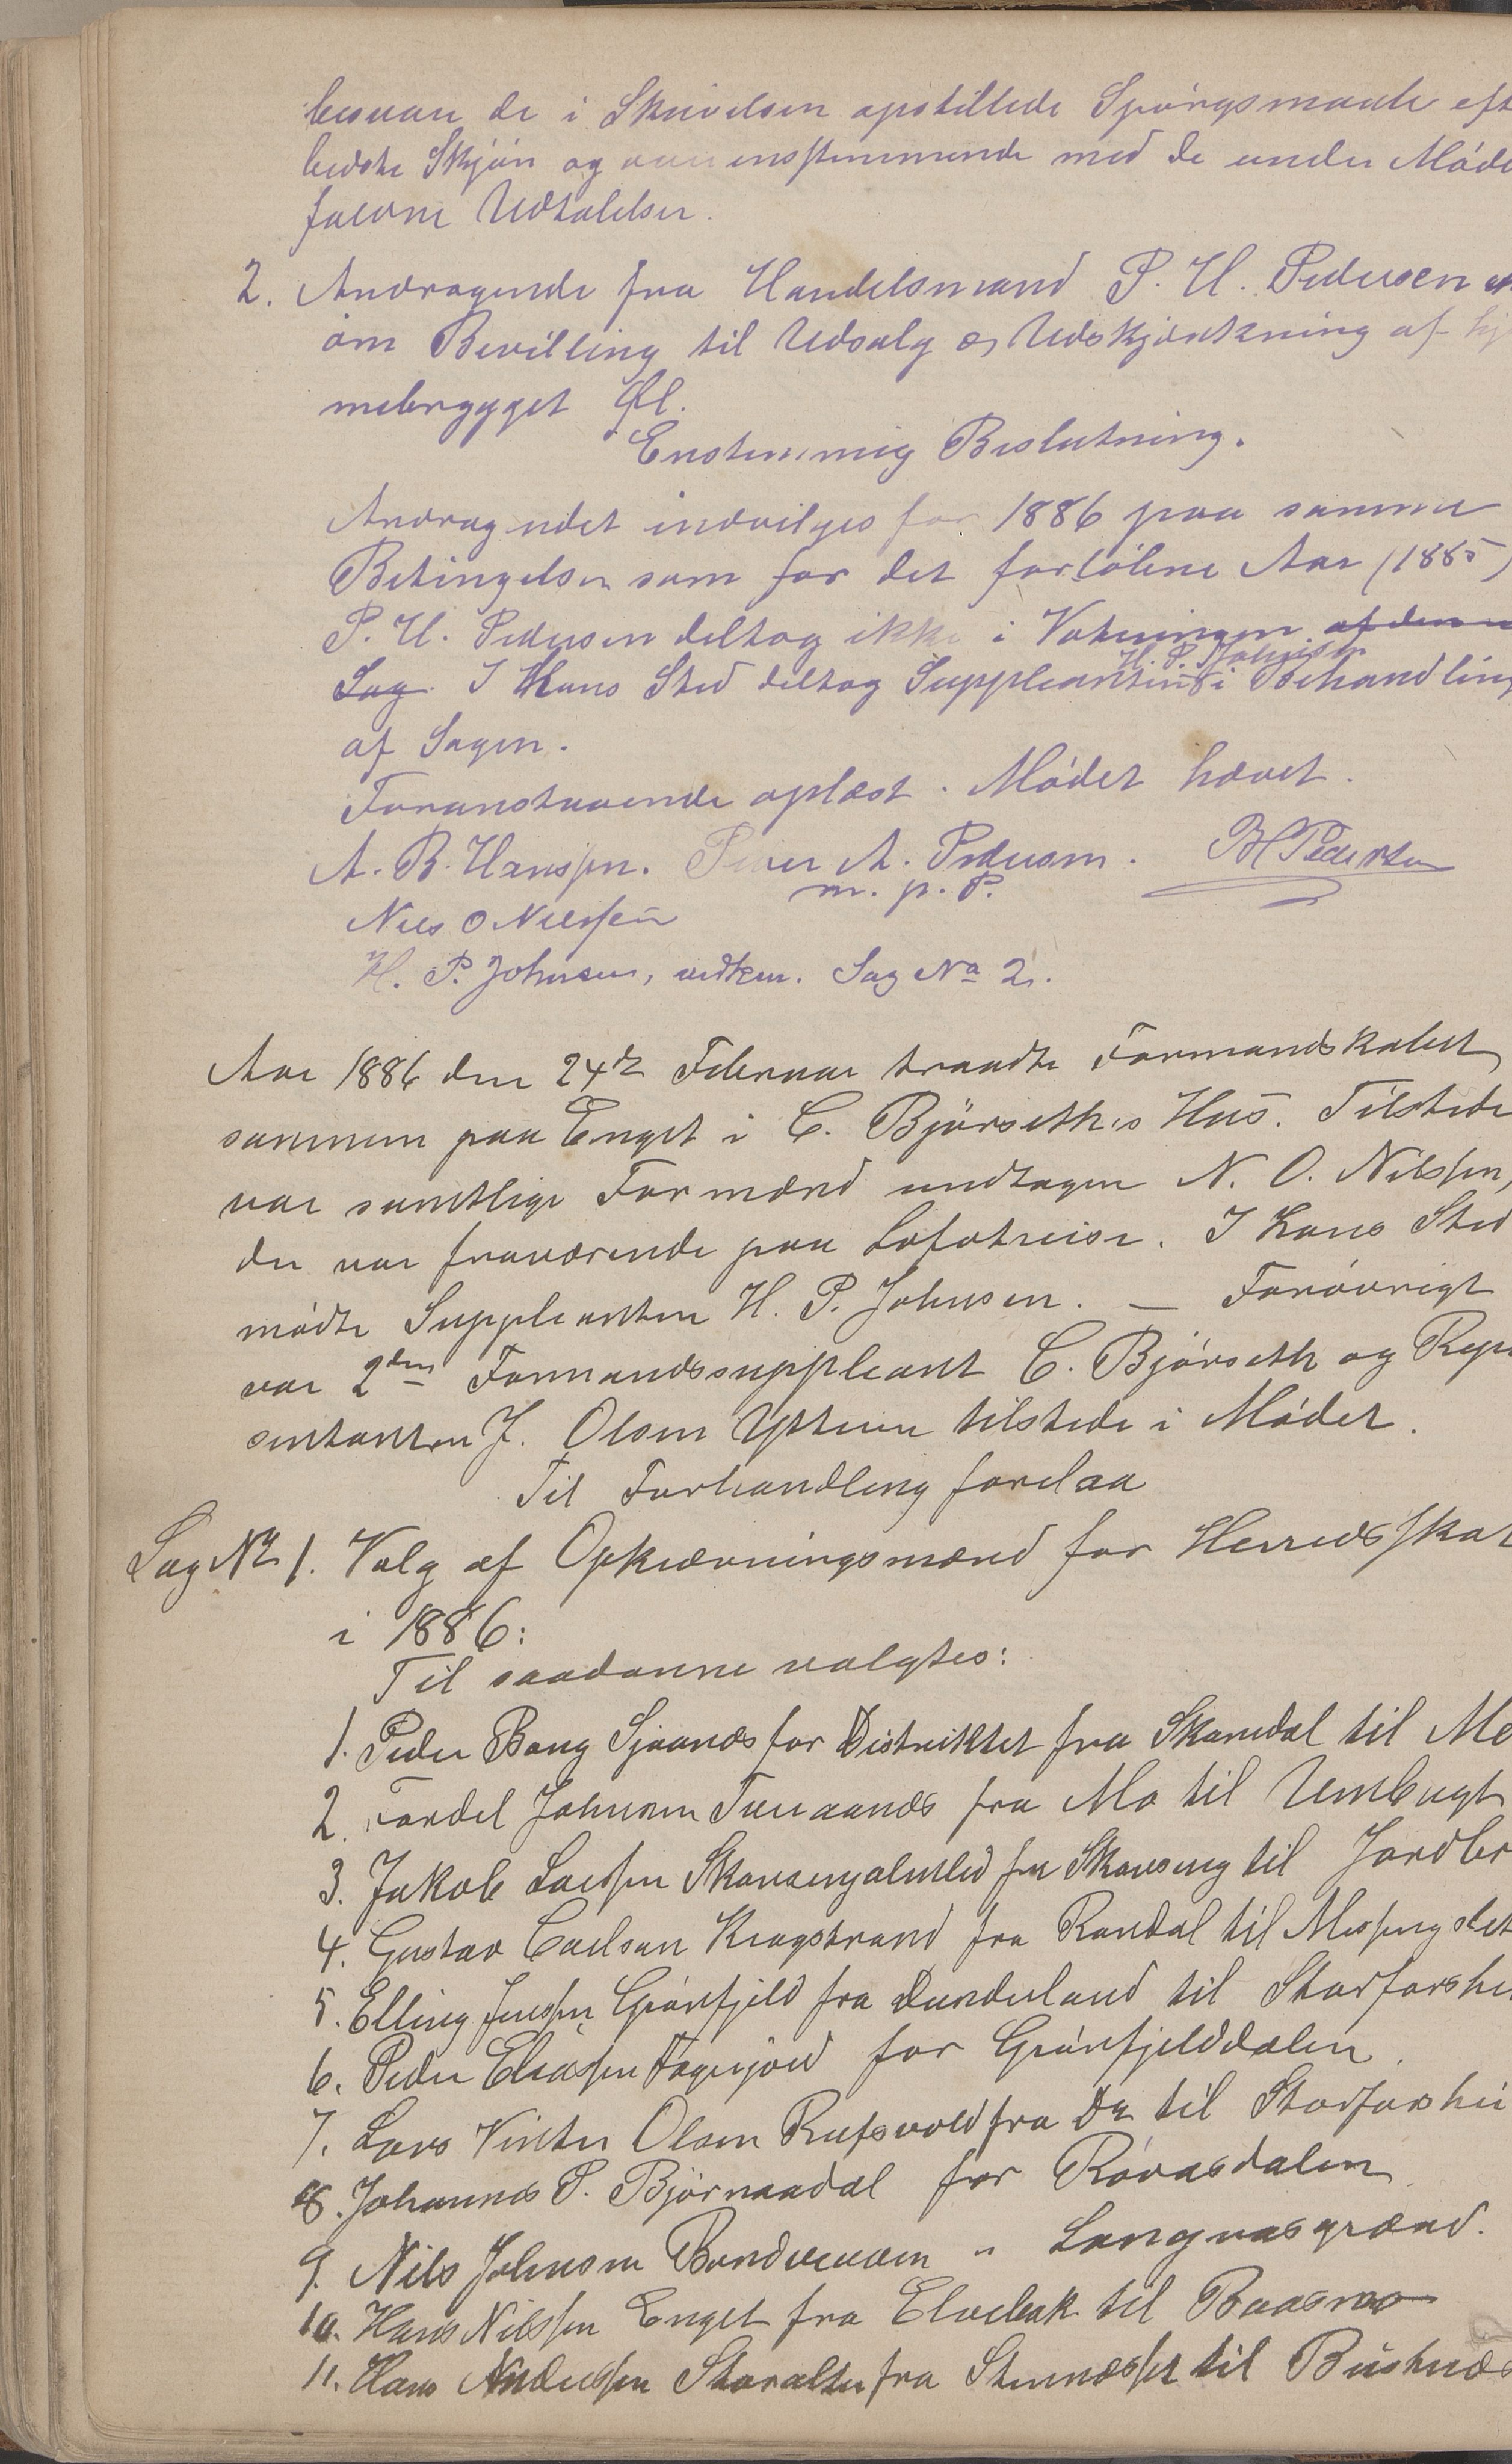 besvare de i Skrivelsen opstillede Spørgsmaale eft
bedste Skjøn og overensstemmende med de under Møde
faldne Udtalelser.
2. Andragende fra Handelsmand P. H. Pedersen
om Bevilling til Udsalg og Udskjænkning af hj
mebrygget Øl.
Enstemmig Beslutning.
Andragendet indvilges for 1886 paa samme
Betingelser som for det forløbne Aar (1885)
P. H. Pedersen deltog ikke i Voteringen af denne
H. P. Johnsen
Sag. I Hans Sted deltog Suppleanten i Behandling
af Sagen.
Foranstaaende oplæst. Mødet hævet.
A. B. Hanssen. Peder A. Pedersen. PHPedersen
m. p. P.
Nils O Nilssen
H. P. Johnsen, vedkom. Sag No 2.
Aar 1886 den 24de Februar traadte Formandskabet
sammen paa Enget i C. Bjørseth's Hus. Tilstede
var samtlige Formænd undtagen N. O. Nilssen,
der var fraværende paa Lofotreise. I Hans Sted
mødte Suppleanten H. P. Johnsen. — Forøvrigt
var 2den Formandssuppleant C. Bjørseth og Repr
sentanten J. Olsen Ytteren tilstede i Mødet.
Til Forhandling forelaa
Sag No 1. Valg af Opkrævningsmænd for Herredsskat
i 1886:
Til saadanne valgtes:
1. Peder Bang Sjaanæs for Distriktet fra Skamdal til Mo
2. Tordel Johnsen Tveraanæs fra Mo til Umbugt
3. Jakob Larssen Skansengalmled fra Skanseng til Jordbr
4. Gustav Carlsen Krogstrand fra Randal til Messingslet
5. Elling Jenssen Grønfjeld fra Dunderland til Storforshe
6. Peder Eliassen Fagerjord for Grønfjelddalen
7. Lars Vinter Olsen Rufsvold fra Do til Storforshei
8. Johannes P. Bjørnaadal for Røvasdalen
9. Nils Johnsen Bondeveien " Langvasgrænd.
10. Hans Nilssen Enget fra Elvebak til Baasmo
11. Hans Anderssen Storalter fra Stennæsset til Bustnæs